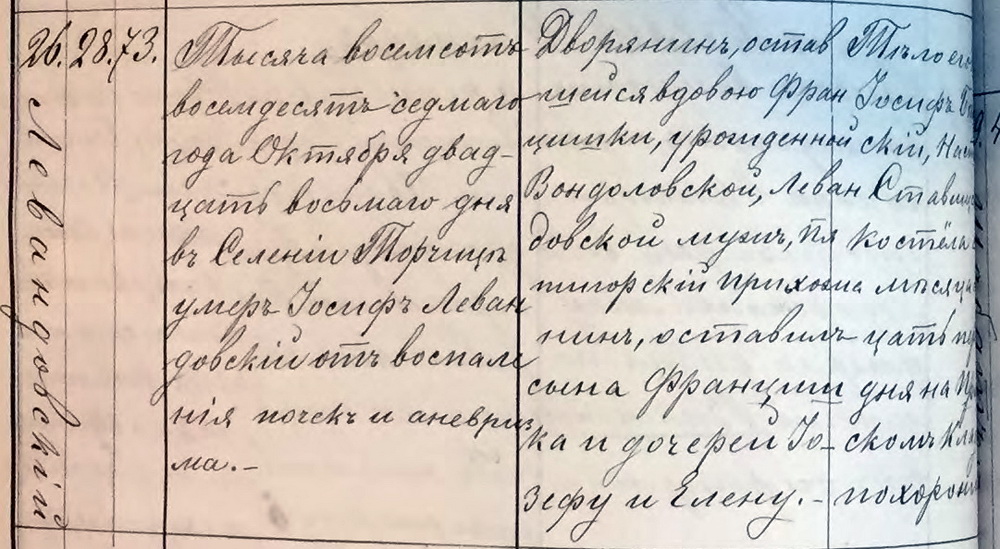 26. 28. 73.
Левандовскій
Тысяча восемсотъ
восемдесятъ седмаго
года Октября двад-
цать восьмаго дня
въ Селеніи Торчицѣ
умеръ Іосифъ Леван
довскій отъ воспале
нія почекъ и аневриз
ма.-
Дворянинъ, остав
шейся вдовою Фран
цишки, урожденной
Вондоловской, Леван
довской мужъ, Пя
тигорскій прихожа
нинъ, оставилъ
сына Францишка
ка и дочерей Іо-
зефу и Елену.-
Тѣло его
Іосифъ
скій,
Ставищ
костёла
мѣсяца
цать
дня на
скомъ
похорон